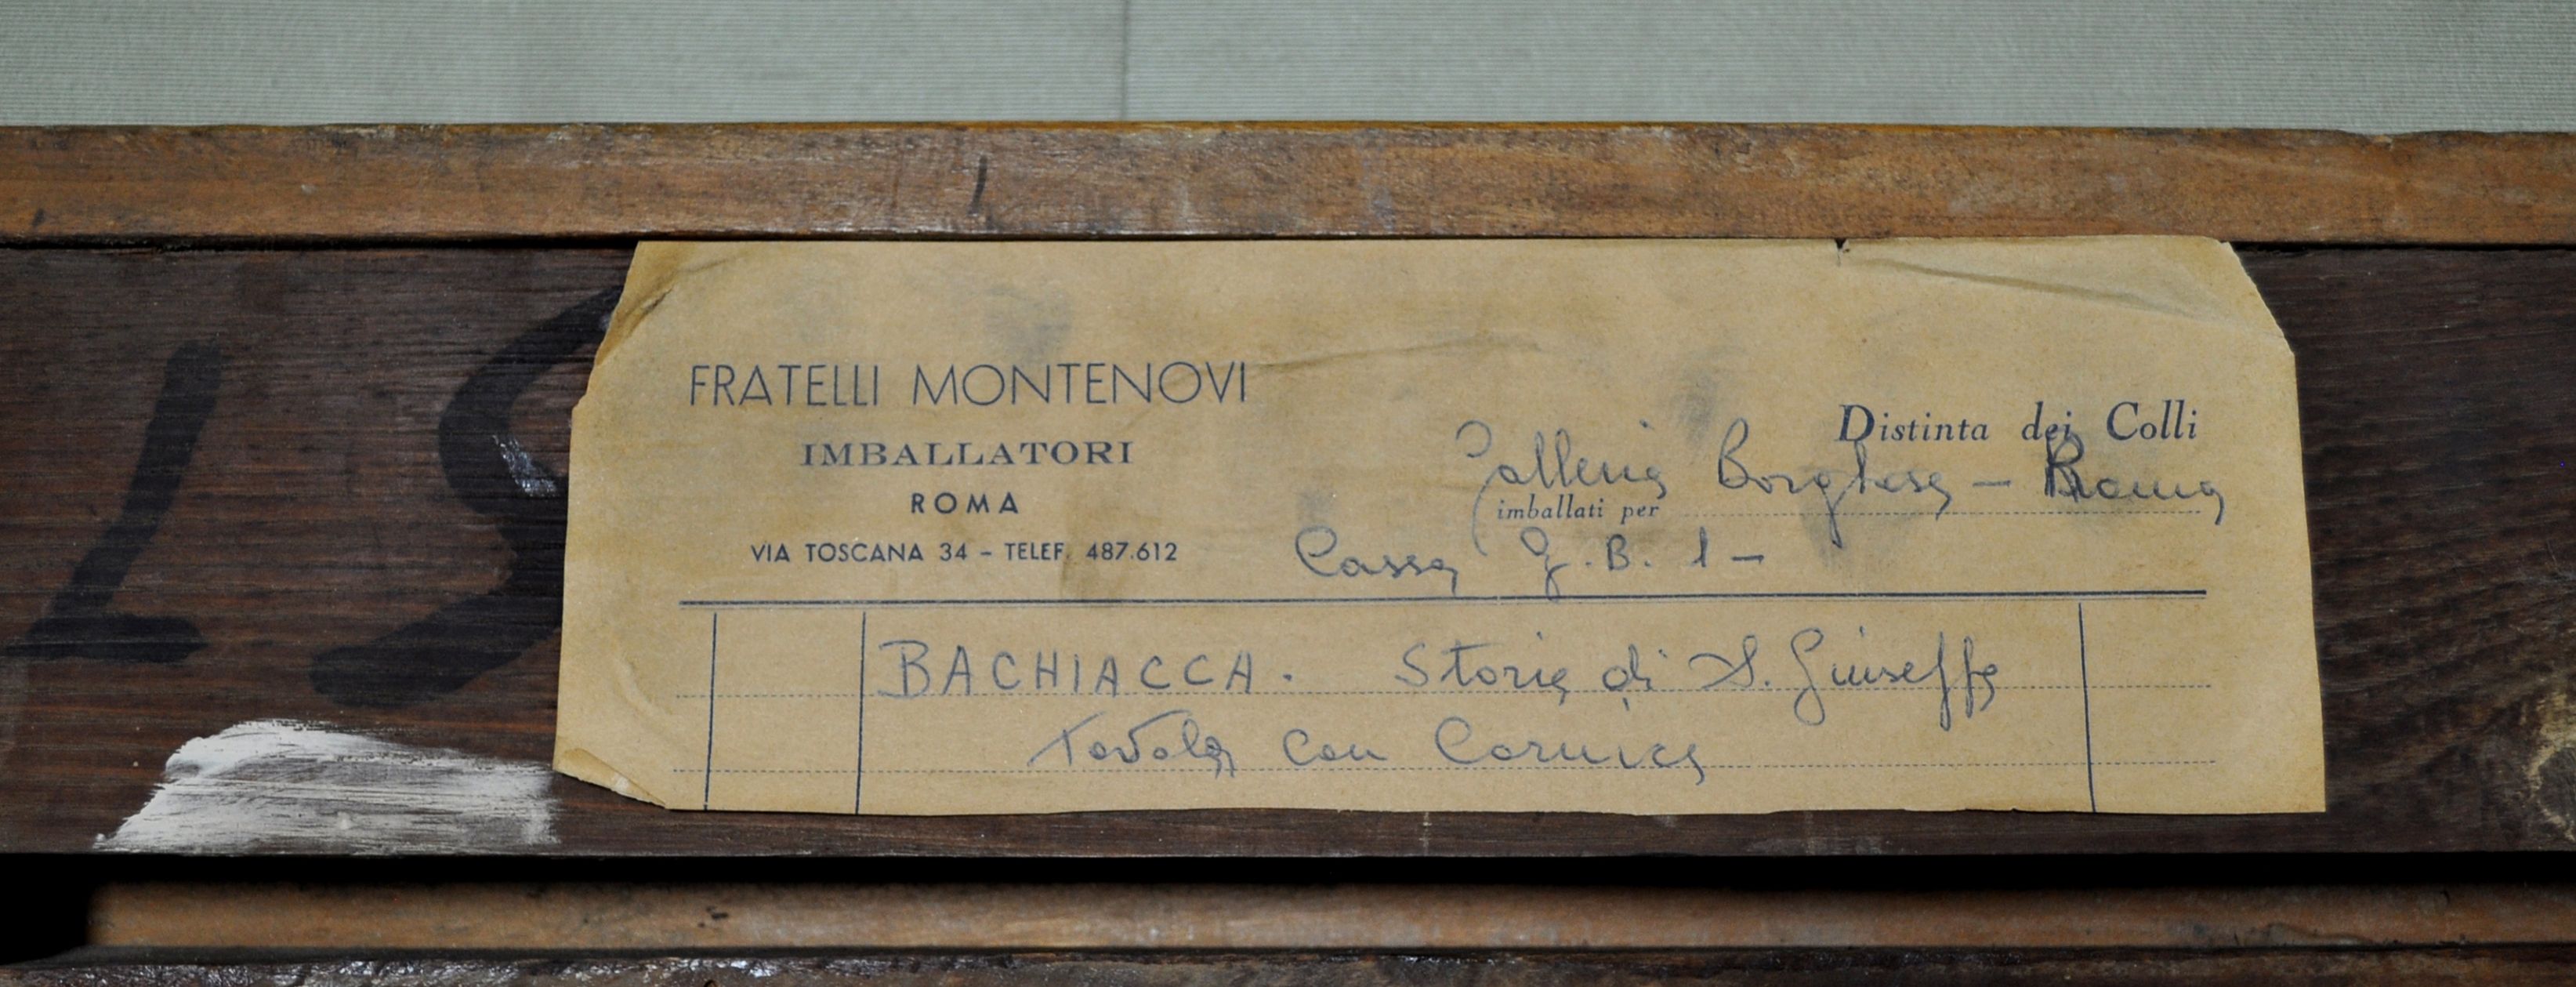 FRATELLI MONTENOVI
IMBALLATORI
ROMA
VIA TOSCANA 34 - TELEF. 487.612
Distinta dei Colli
Galleria Borghese - Roma
imballati per
Cassa G. B. 1 -
BACHIACCA. Storia di S. Giuseppe
Tavola con Cornice